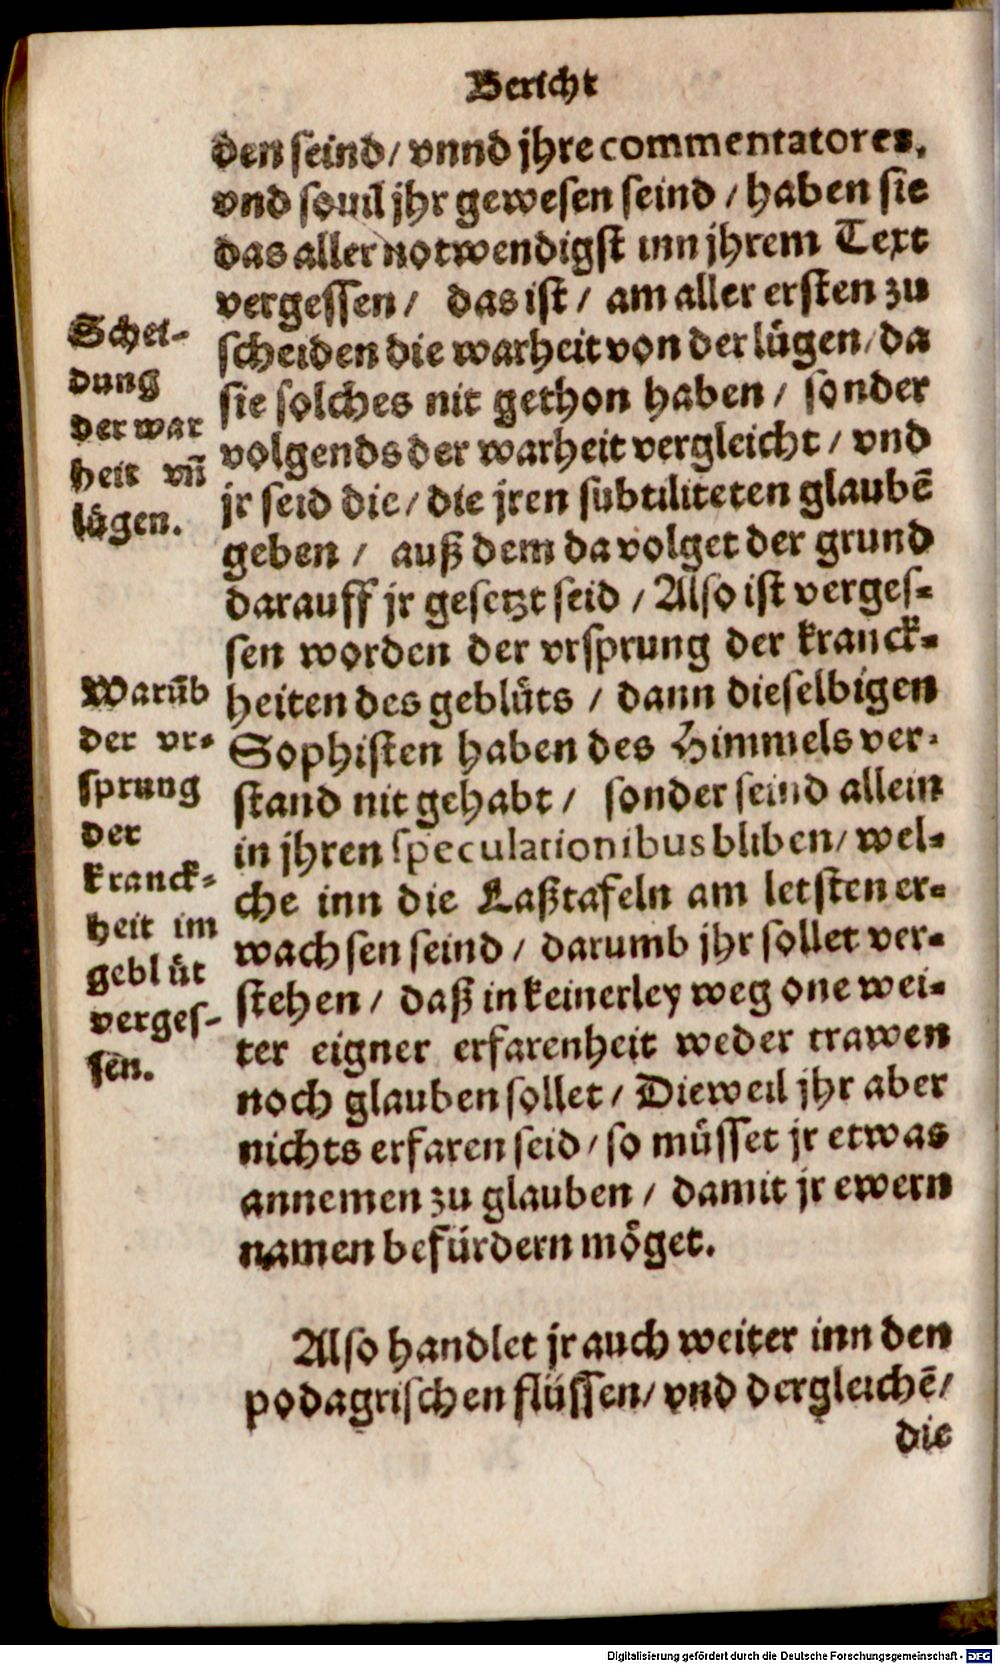 Bericht
den seind/ vnnd jhre commentatores.
vnd souil jhr gewesen seind / haben sie
das aller notwendigst inn jhrem Text
vergessen/ das ist / am aller ersten zu
scheiden die warheit von der lügen/ da
sie solches nit gethon haben / sonder
volgends der warheit vergleicht / vnd
jr seid die/ die jren subtiliteten glaubē
geben / auß dem da volget der grund
darauff jr gesetzt seid / Also ist verges-
sen worden der vrsprung der kranck-
heiten des geblüts / dann dieselbigen
Sophisten haben des Himmels ver-
stand nit gehabt / sonder seind allein
in jhren speculationibus bliben/ wel-
che inn die Laßtafeln am letsten er-
wachsen seind / darumb jhr sollet ver-
stehen / daß in keinerley weg one wei-
ter eigner erfarenheit weder trawen
noch glauben sollet / Dieweil jhr aber
nichts erfaren seid / so müsset jr etwas
annemen zu glauben / damit jr ewern
namen befürdern möget.
Also handlet jr auch weiter inn den
podagrischen flüssen/ vnd dergleichē/
die
Schei-
dung
der war
heit vñ
lügen.
Warūb
der vr-
sprung
der
kranck-
heit im
geblüt
verges-
sen.
Digitalisierung gefördert durch die Deutsche Forschungsgemeinschaft - DFG